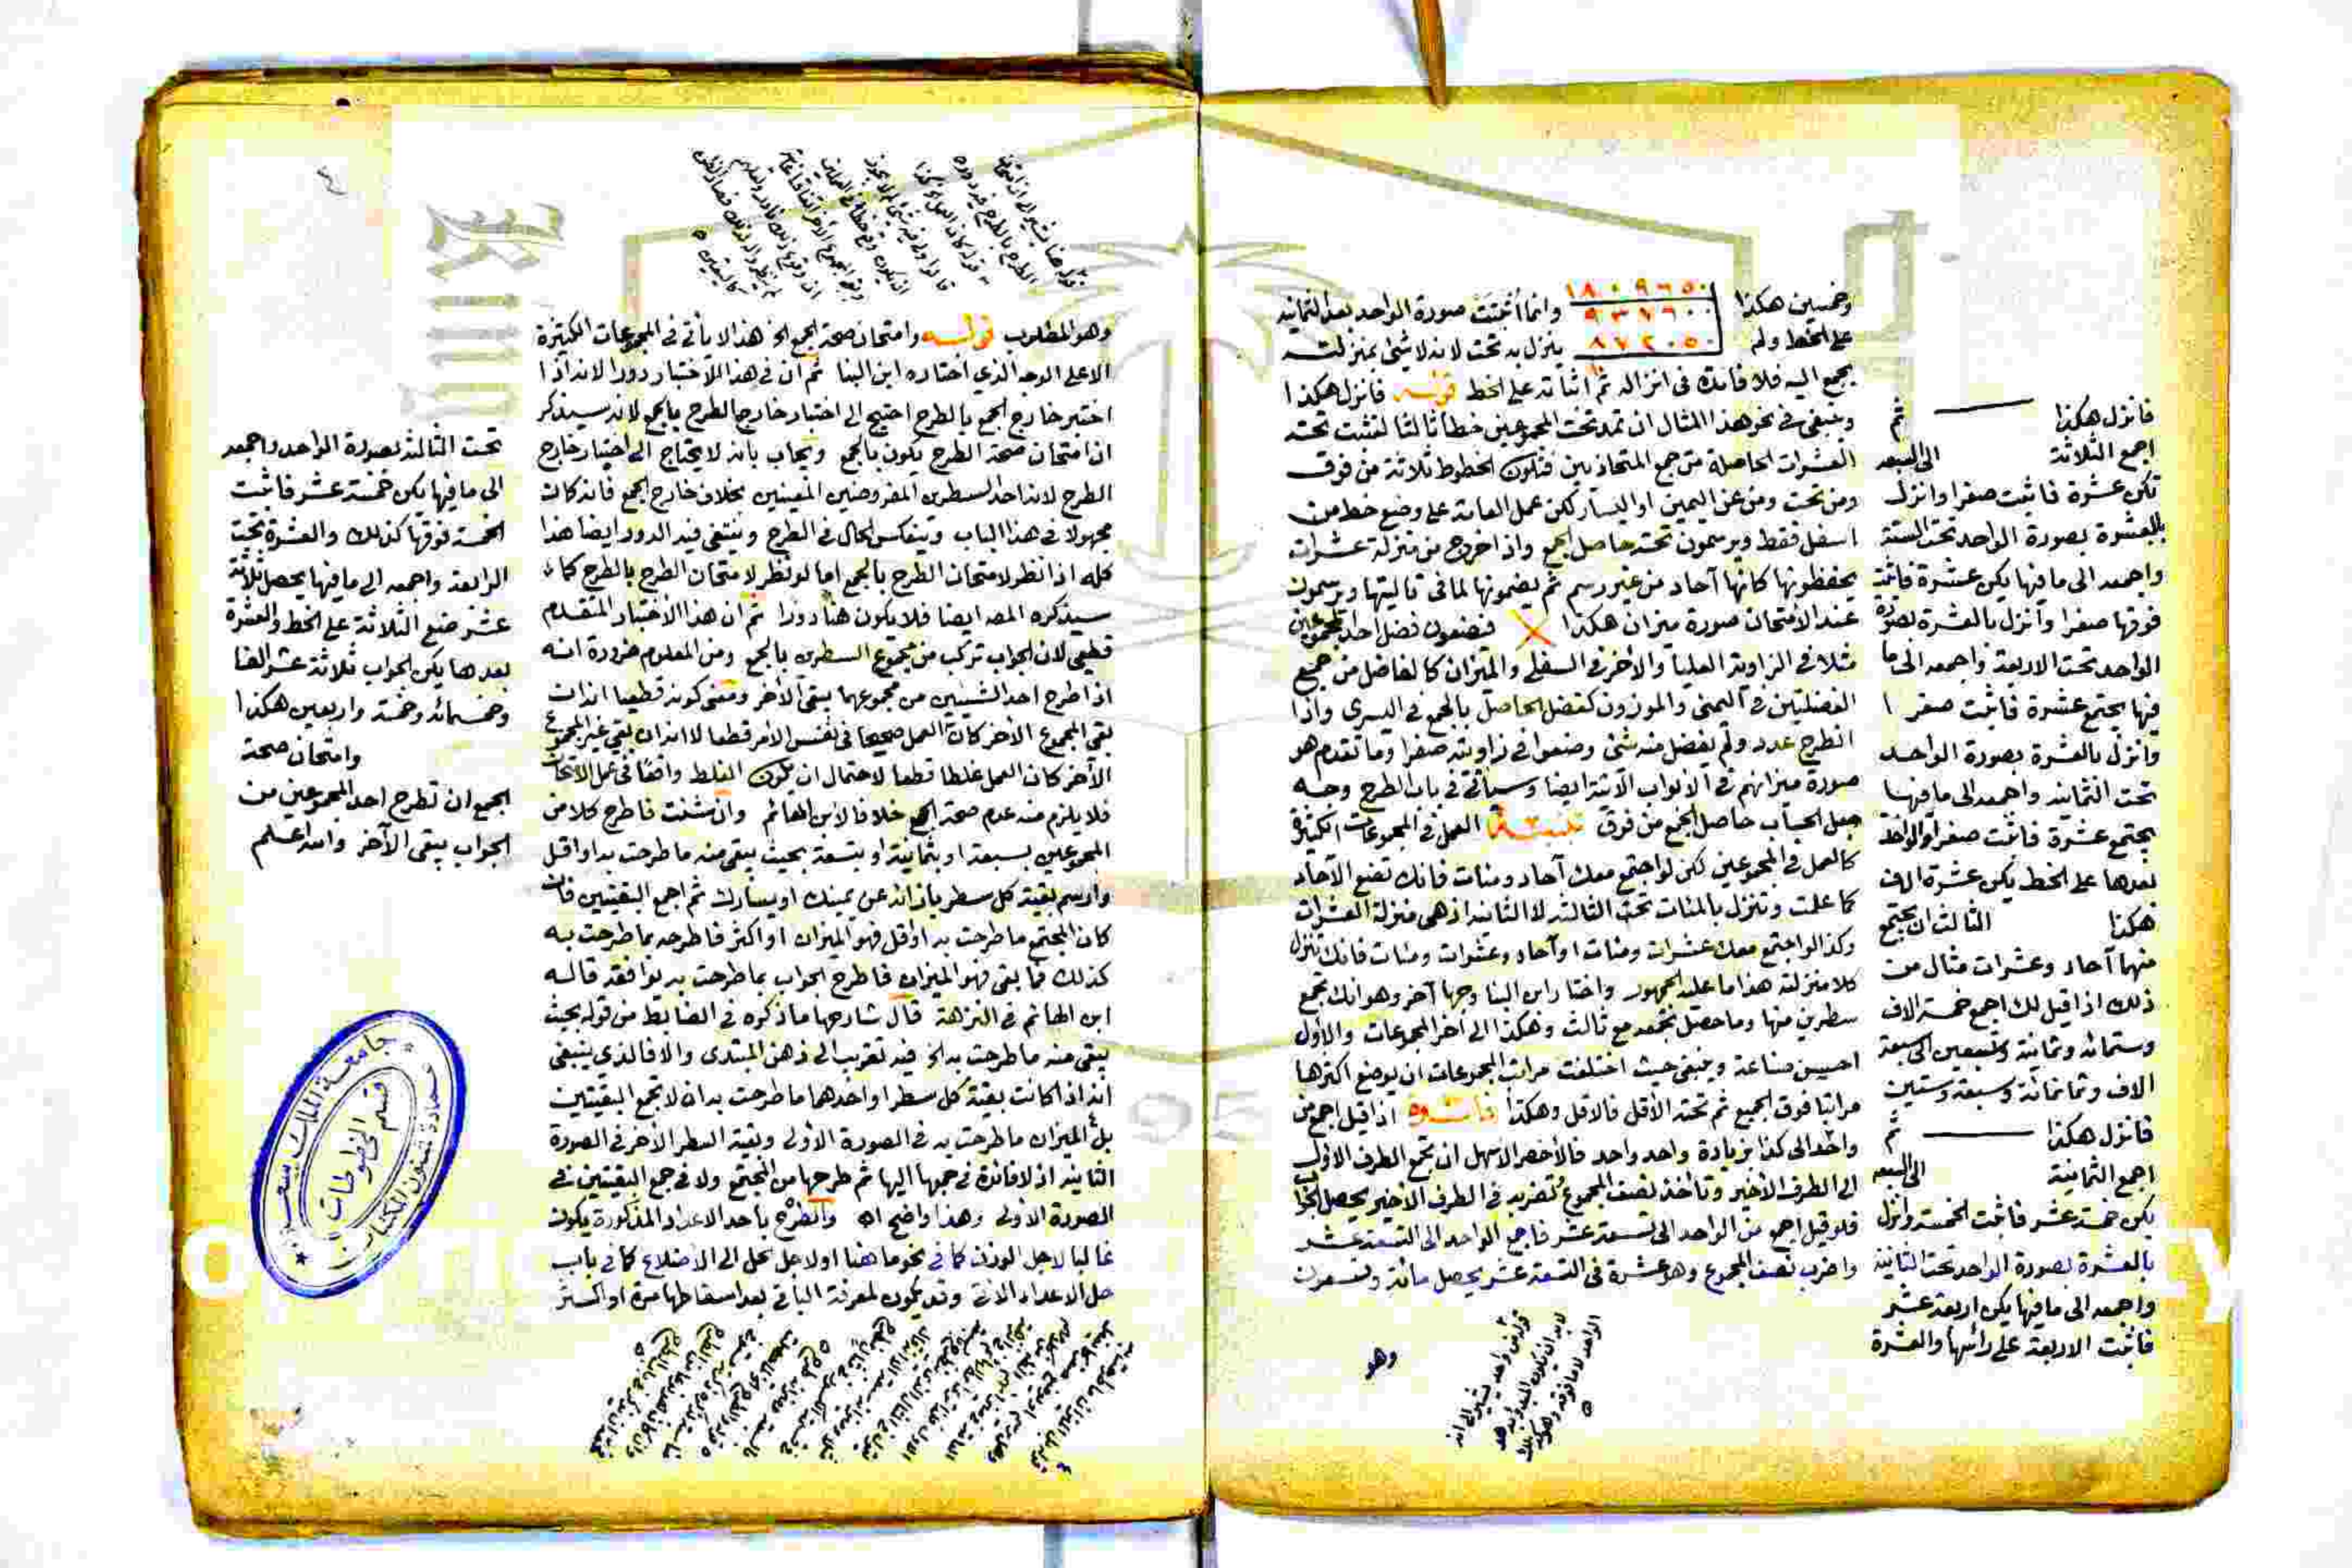 وخمسين هكذا ١٨٠٩٦٥٠ وانما أثبتت صورة الواحد بعد الثمانية
٩٣٧٦٠٠
على الخط ولم ٨٧٢٠٥٠ ينزل به تحت لانه لا شئ بمنزلته
يجمع اليه فلا فائدة فى انزاله ثم اثباته على الخط قوله فانزل هكذا
وينبغى فى نحو هذا المثال ان تمد تحت المجموعين خطا ثالثا لتثبت تحته
العشرات الحاصلة من جمع المتحاذيين فتكون الخطوط ثلاثة من فوق
ومن تحت ومن عن اليمين او اليسار لكن عمل العامة على وضع خط من
اسفل فقط ويرسمون تحته حاصل الجمع واذا خرج من منزلة عشرات
يحفظونها كانها آحاد من غير رسم ثم يضمونها لما فى تاليتها ويرسمون
عند الامتحان صورة ميزان هكذا فيضعون فضل احد المجموعين
مثلا فى الزاوية العليا والأخر فى السفلى والميزان كالفاضل من جميع
الفضلتين فى اليمنى والموزون كفضل الحاصل بالجمع فى اليسرى واذا
انطرح عدد ولم يفضل منه شئ وضعوا فى زاويته صفرا وما تقدم هو
صورة ميزانهم فى الابواب الآتية ايضا وسيأتى فى باب الطرح وجه
جعل الحساب حاصل الجمع من فوق تنبيه العمل فى المجموعات الكثيرة
كالعمل فى المجموعين لكن لو اجتمع معك آحاد ومئات فانك تضع الآحاد
كما علمت وتنزل بالمئات تحت الثالثة لا الثانية اذ هى منزلة العشرات
وكذا لو اجتمع معك عشرات ومئات او آحاد وعشرات ومئات فانك تنزل
كلا منزلته هذا ما عليه الجمهور واختار ابن البنا وجها آخر وهو انك تجمع
سطرين منها وما حصل تجمعه مع ثالث وهكذا الى آخر المجموعات والاول
احسن صناعة وينبغى حيث اختلفت مراتب المجموعات ان يوضع اكثرها
مراتبا فوق الجميع ثم تحته الأقل فالاقل وهكذا فائدة اذا قيل اجمع من
واحد الى كذا بزيادة واحد واحد فالأخصر الأسهل ان تجمع الطرف الاول
الى الطرف الأخير وتأخذ نصف المجموع وتضربه فى الطرف الأخير يحصل الجواب
فلو قيل اجمع من الواحد الى تسعة عشر فاجمع الواحد الى التسعة عشر
واضرب نصف المجموع وهو عشرة فى التسعة عشر يحصل مائة وتسعون
وهو
فانزل هكذا ثم
اجمع الثلاثة الى السبعة
تكن عشرة فاثبت صفرا وانزل
بالعشرة بصورة الواحد تحت الستة
واجمعه الى ما فيها يكن عشرة فاثبت
فوقها صفرا وأنزل بالعشرة بصورة
الواحد تحت الاربعة واجمعه الى ما
فيها يجتمع عشرة فاثبت صفرا
وانزل بالعشرة بصورة الواحد
تحت الثمانية واجمعه الى ما فيها
يجتمع عشرة فاثبت صفرا والواحد
بعدها على الخط يكن عشرة الاف
هكذا الثالث ان يجتمع
منها آحاد وعشرات مثال من
ذلك اذا قيل لك اجمع خمسة الاف
وستمائة وثمانية وسبعين الى سبعة
الاف وثمانمائة وسبعة وستين
فانزل هكذا ثم
اجمع الثمانية الى السبعة
يكن خمسة عشر فاثبت الخمسة وانزل
بالعشرة بصورة الواحد تحت الثانية
واجمعه الى ما فيها يكن اربعة عشر
فاثبت الاربعة على رائسها والعشرة
وهو المطلوب قوله وامتحان صحة الجمع الخ هذا لا يأتى فى المجموعات الكثيرة
الا على الوجه الذى اختاره ابن البنا ثم ان فى هذا الاختبار دورا لانه اذا
اختبر خارج الجمع بالطرح احتيج الى اختبار خارج الطرح بالجمع لانه سيذكر
ان امتحان صحة الطرح يكون بالجمع ويجاب بانه لا يحتاج الى اختبار خارج
الطرح لانه احد السطرين المفروضين المعينين بخلاف خارج الجمع فانه كان
مجهولا فى هذا الباب وينعكس الحال فى الطرح وينتفى فيه الدور ايضا هذا
كله اذا نظر لامتحان الطرح بالجمع اما لو نظر لامتحان الطرح بالطرح كما
سيذكره المصه ايضا فلا يكون هنا دورا ثم ان هذا الأختبار المتقدم
قطعى لان الجواب تركب من مجموع السطرين بالجمع ومن المعلوم ضرورة انه
اذا طرح احد الشيئين من مجموعهما يبقى الأخر ومعنى كونه قطعيا انه ان
بقى المجموع الأخر كان العمل صحيحا فى نفس الامر قطعا لا انه ان بقى غير المجموع
الأخر كان العمل غلطا قطعا لاحتمال ان يكون الغلط واقعا فى عمل الامتحان
فلا يلزم منه عدم صحة الجمع خلافا لابن الهائم وان شئت فاطرح كلا من
المجموعين بسبعة او بثمانية او بتسعة بحيث يبقى منه ما طرحت به او اقل
وارسم بقية كل سطر بازائه عن يمينك او يسارك ثم اجمع البقيتين فان
كان المجتمع ما طرحت به او اقل فهو الميزان او اكثر فاطرحه بما طرحت به
كذلك فما بقى فهو الميزان فاطرح الجواب بما طرحت به يوافقه قاله
ابن الهائم فى النزهة قال شارحها ما ذكره فى الضابط من قوله بحيث
يبقى منه ما طرحت به الخ فيه تقريب الى ذهن المبتدى والا فالذى ينبغى
انه اذا كانت بقية كل سطر او احدهما ما طرحت به ان لا تجمع البقيتين
بل الميزان ما طرحت به فى الصورة الأولى وبقية السطر الأخر فى الصورة
الثانية اذ لا فائدة فى جمعها اليها ثم طرحها من المجتمع ولا فى جمع البقيتين فى
الصورة الأولى وهذا واضح اه والطرح باحد الاعداد المذكورة يكون
غالبا لاجل الوزن كما فى نحو ما هنا او لاجل الحل الى الاضلاع كما فى باب
حل الاعداد الاتى وقد يكون لمعرفة الباقى بعد اسقاطها مرة او اكثر
تحت الثالثة بصورة الواحد واجمعه
الى ما فيها يكن خمسة عشر فاثبت
الخمسة فوقها كذلك والعشرة تحت
الرابعة واجمعه الى ما فيها يحصل ثلاثة
عشر ضع الثلاثة على الخط والعشرة
بعدها يكن الجواب ثلاثة عشر الفا
وخمسمائه وخمسة واربعين هكذا
وامتحان صحة
الجمع ان تطرح احد المجموعين من
الجواب يبقى الآخر والله اعلم
جامعة الملك سعود
عمادة شئون المكتبات
قسم المخطوطات